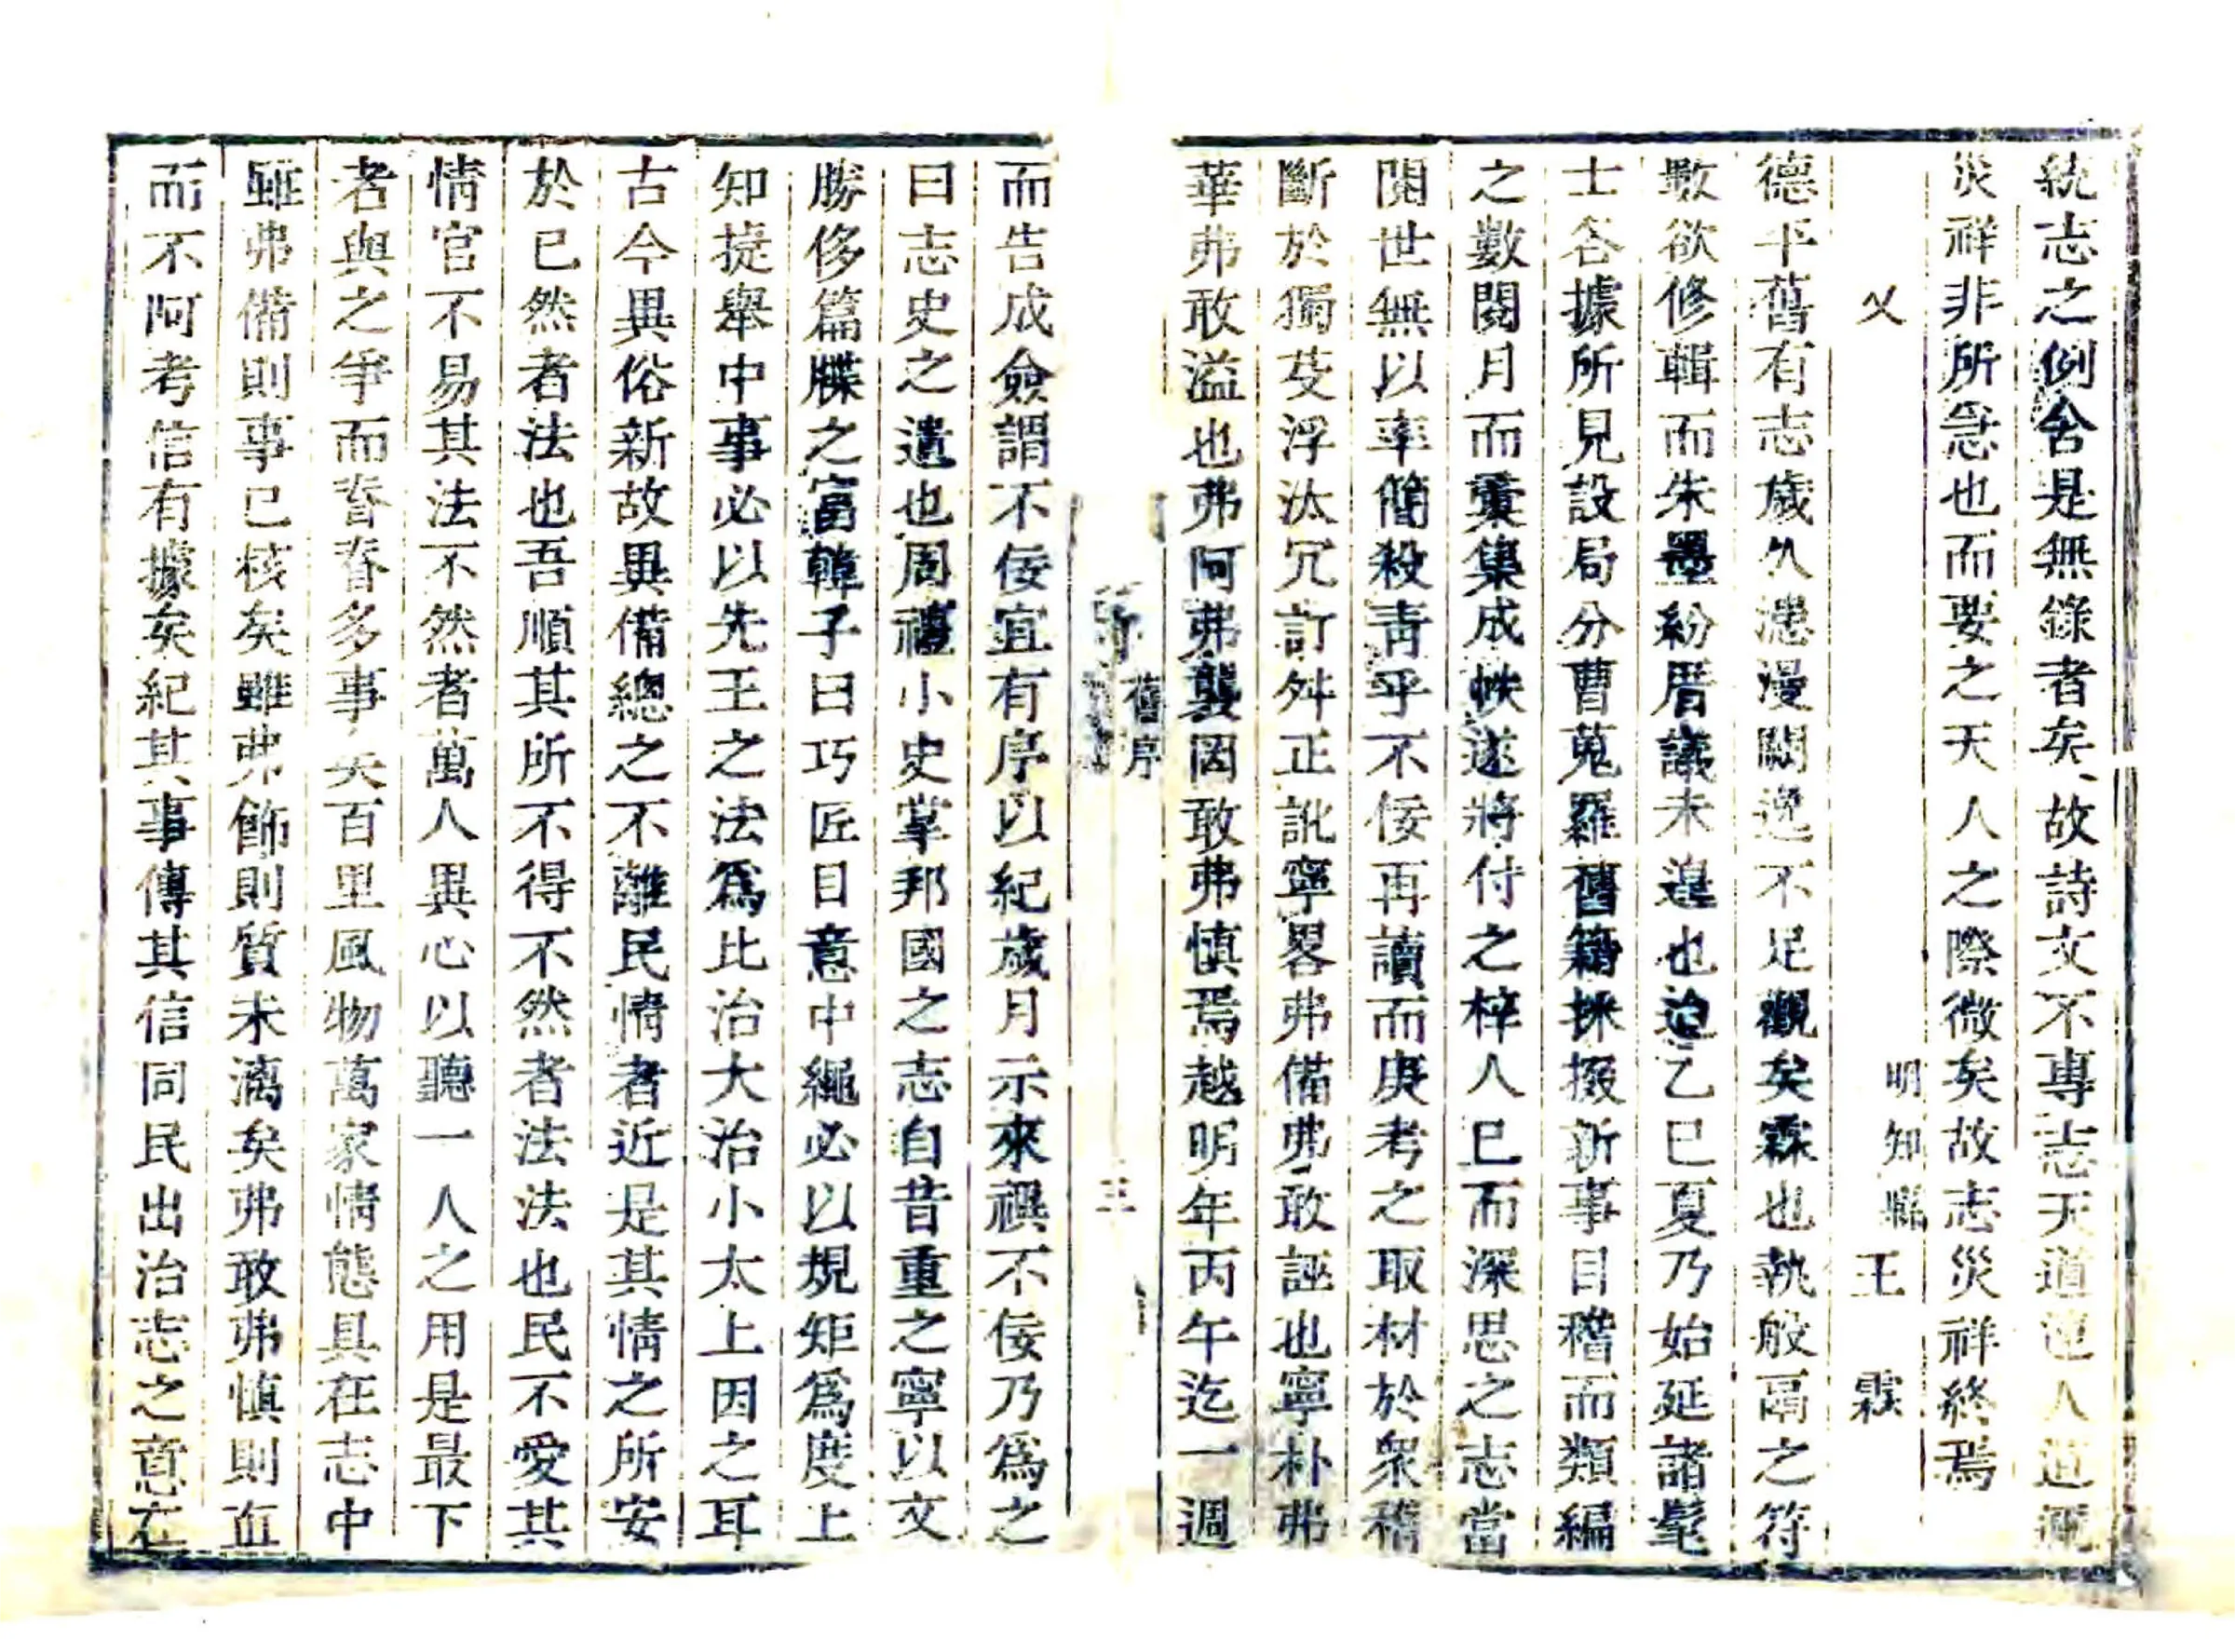 統志之例舍是無錄者矣故詩文不專志天道遠人道邇
災祥非所急也而要之天人之際微矣故志災祥終焉
又 明知縣 王霖
德平舊有志歲久漶漫闕逸不足觀矣霖也執般鬲之符
數欲修輯而朱墨紛厝議未遑也迨乙巳夏乃始延諸髦
士各據所見設局分曹蒐羅舊籍採掇新事目稽而類編
之數閱月而彙集成帙遂將付之梓人已而深思之志當
閱世無以率簡殺青乎不佞再讀而庚考之取材於衆稽
斷於獨芟浮汰冗訂舛正訛寧畧弗備弗敢誣也寧朴弗
華弗敢溢也弗阿弗襲因敢弗慎焉越明年丙午迄一週
舊序
三
而告成僉謂不佞宜有序以紀歲月示來禩不佞乃爲之
曰志史之遺也周禮小史掌邦國之志自昔重之寧以文
勝侈篇牒之富韓子曰巧匠目意中繩必以規矩爲度上
知捷舉中事必以先王之法爲比治大治小太上因之耳
古今異俗新故異備總之不離民情者近是其情之所安
於已然者法也吾順其所不得不然者法法也民不愛其
情官不易其法不然者萬人異心以聽一人之用是最下
者與之爭而眘眘多事矣百里風物萬家情態具在志中
雖弗備則事已核矣雖弗飾則質未漓矣弗敢弗慎則直
而不阿考信有據矣紀其事傳其信同民出治志之意在